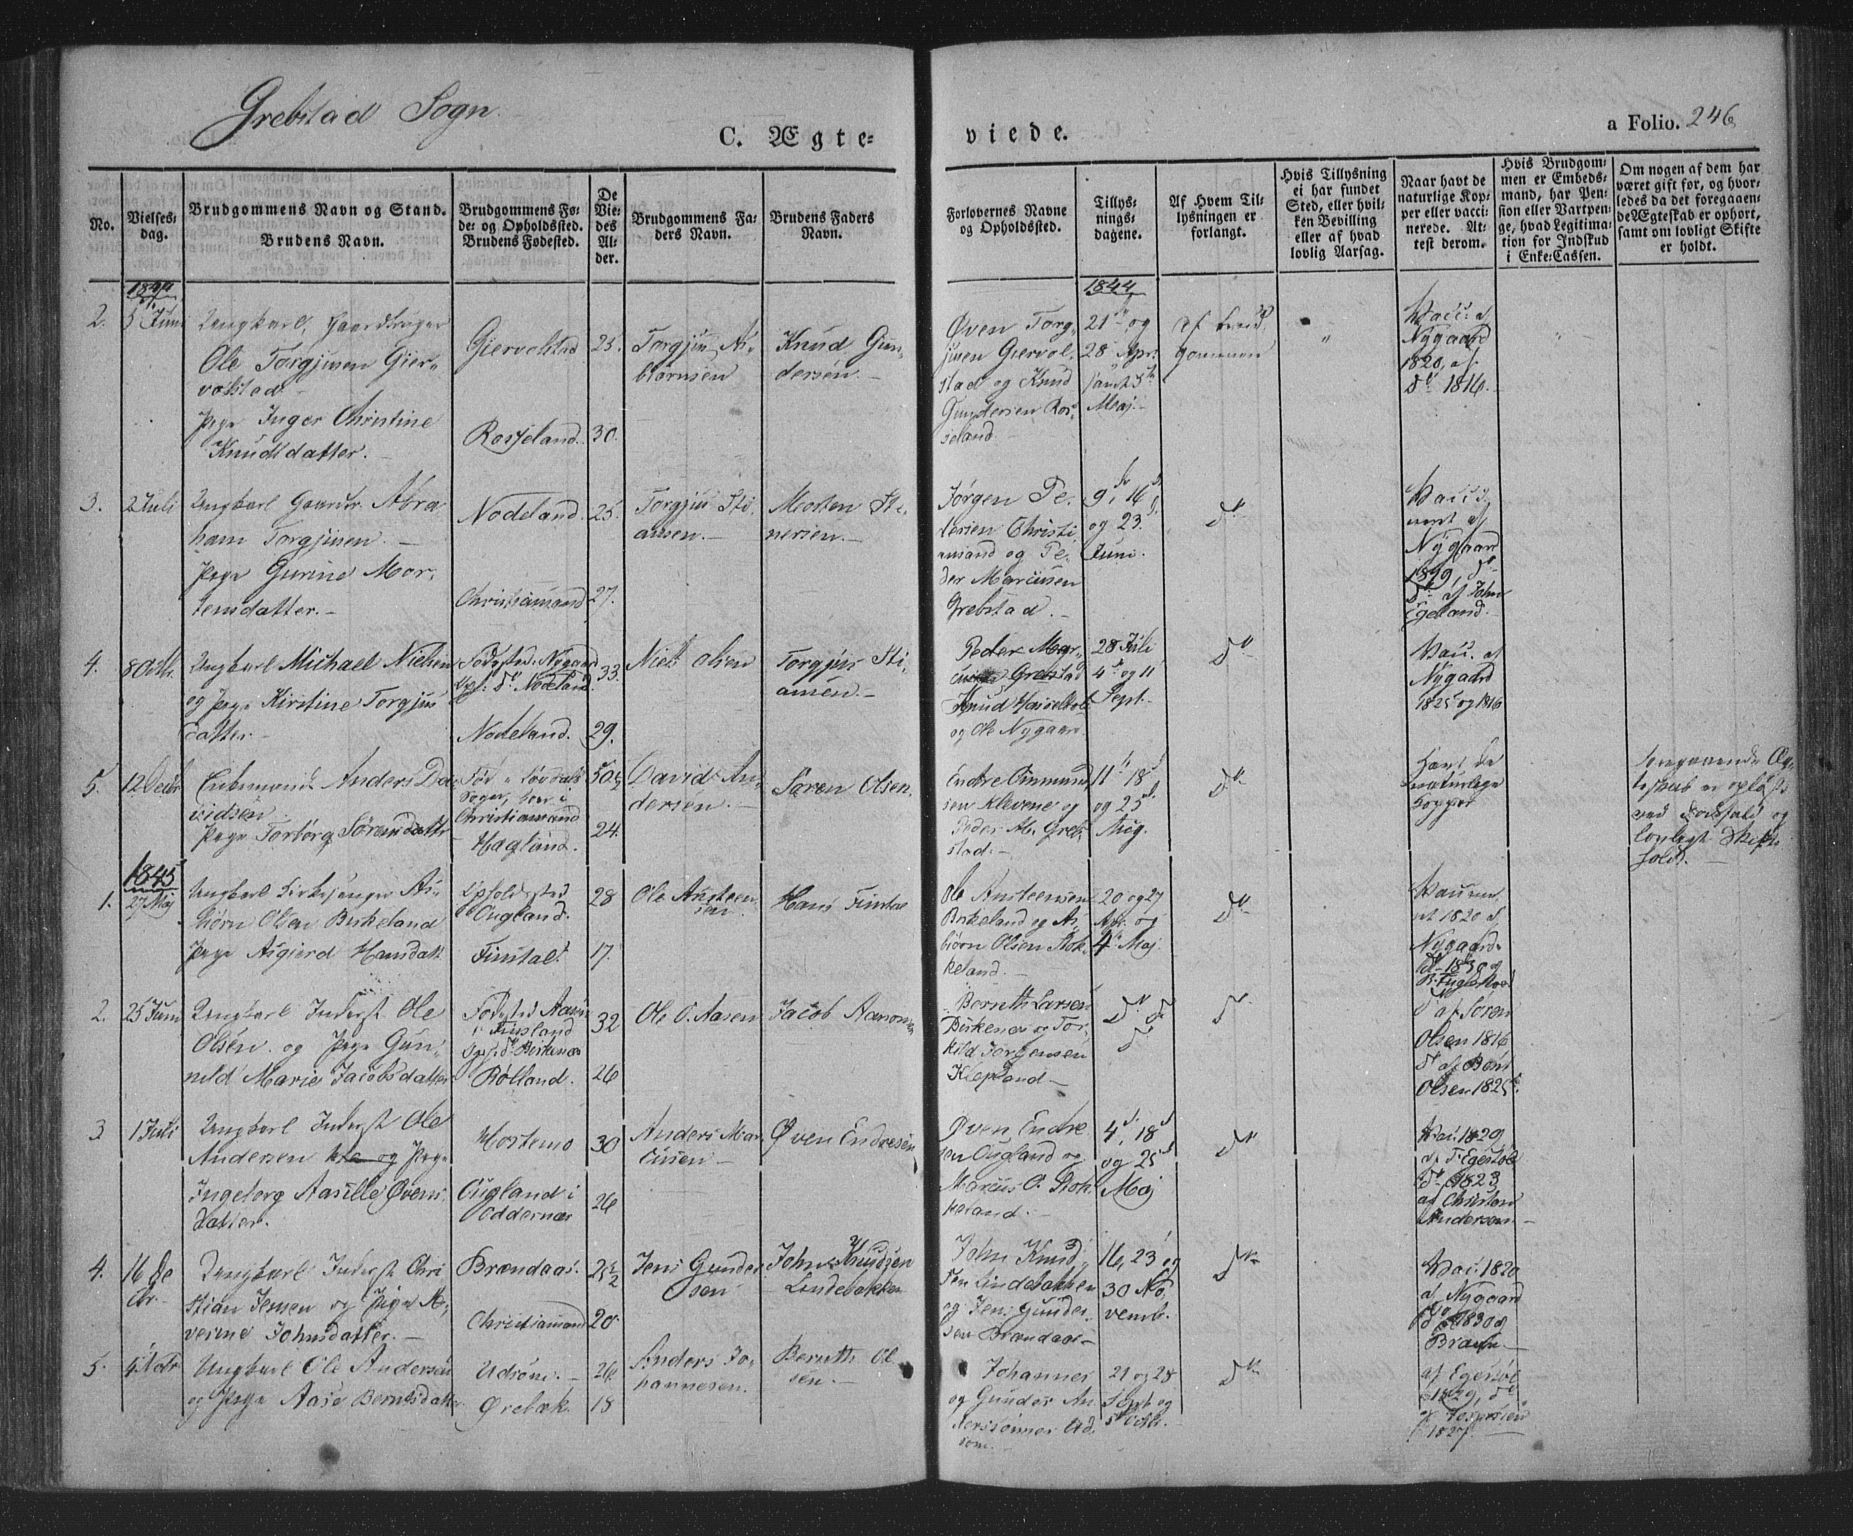 Grebstad Sogn
C. Ægte-
viede.
a Folio. 246
No.
Vielses-
dag.
Brudgommens Navn og Stand.
Brudens Navn.
Brudgommens Fø-
de- og Opholdssted.
Brudens Fødested.
De
Vie-
des
Al-
der.
Brudgommens Fa-
ders Navn.
Brudens Faders
Navn.
Forlovernes Navne
og Opholdssted.
Tillys-
nings-
dagene.
Af Hvem Til-
lysningen er
forlangt.
Hvis Tillysning
ei har fundet
Sted, eller hvil-
ken Bevilling
eller af hvad
lovlig Aarsag.
Naar havt de
naturlige Kop-
per eller vacci-
nerede. At-
test derom.
Hvis Brudgom-
men er Embeds-
mand, har Pen-
sion eller Vartpen-
ge, hvad Legitima-
tion for Indskud
i Enke-Cassen.
Om nogen af dem har
været gift før, og hvor-
ledes da det foregaaen-
de Ægteskab er ophørt,
samt om lovligt Skifte
er holdt.
1844
2.
Juni
Ungkarl, Gaardbruger
Ole Torgjusen Gier-
volstad
Pige Inger Christine
Knudsdatter.
Giervolstad
Rosseland.
25.
30.
Torgjus As-
biørnsen
Knud Gun-
dersen
Øven Torg-
jusen Giervol-
stad og Knud
Gundersen Ros-
seland
1844
21de og
28 Apr.
samt 5te
Maj.
af Brud-
gommen
"
Vacc. af
Nygaard
1820, af
do 1816.
"
3.
2 Juli
Ungkarl Gaardbr. Abra
ham Torgjusen.
Pige Gurine Mor-
tensdatter.
Nodeland.
Christiansand
25.
27.
Torgjus Sti-
ansen.
Morten Ste-
nersen.
Jørgen Pe-
tersen Christi-
ansand og Pe-
der Marcusen
Grebstad.
9, 16
og 23
Juni.
do
Vacci-
neret af
Nygaard
1819, do
do af John
Egeland.
4.
8 Octbr.
Ungkarl Michael Nielsen
og Pige Kirstine Torgjus
datter.
Fødested: Nygaard
Ops: do Nodeland.
Nodeland.
33.
29.
Niels Olsen
Torgjus Sti-
ansen.
Peder Mar-
cusen Grebstad
Knud
og Ole Nygaard
28 Juli
4de og 11
Sept.
do
Vacc. af
Nygaard
1825 og 1816
5.
12 Decbr
Enkemand Anders Da-
vidsen
Pige Torborg Sørensdatter
Christiansand
Hagland.
50½
24.
David An-
dersen.
Søren Olsen.
Endre Omund-
sen Klevene og
Peder M. Greb-
stad.
11te 18de
og 25de
Aug.
do
Havt de
naturlige
Kopper
foregaaende Æg-
teskab er opløst
ved Dødsfald og
lovligt Skifte
holdt.
1845
1.
27 Maj
Ungkarl Kirkesanger As-
biørn Olsen Birkeland
Pige Asgierd Hansdatt
Opholdssted
Ougland.
Finstal.
28
17.
Ole Ansteen-
sen.
Hans Finstal
Ole Ansteensen
Birkeland og As-
biørn Olsen Stok-
keland.
20 og 27
Apr. og
4de Maj.
do
Vaccine-
ret 1820 af
Nygaard
do 1830 af
2.
25 Juni
Ungkarl Inderst Ole
Olsen og Pige Gun-
nild Marie Jacobsdatter
Fødested Aasen
i Finsland
Ops: do Birkenæs
Rølland.
32
26
Ole O. Aasen
Jacob Aanon-
Berneth Larsen
Birkenæs og Tor-
kild Jørgensen
Klepland
do do
do
do
do af Søren
Olsen 1816
do af Bent
Olsen 1825.
3
1 Juli
Ungkarl Inderst Ole
Andersen og Pige
Ingeborg Aasille Øvens
datter.
Hortemo
Ougland i
Oddernæs
30
26
Anders Mar-
cusen
Øven Endresen
Øven Endre
sen Ougland og
Marcus O. Stok-
keland.
4de 18de
og 25de
Maj
do
Vac. 1829
af T. Egesføl
do 1823
af Christen
Andersen
4.
16 De
cbr
Ungkarl Inderst Chri
stian Jensen og Pige Se-
verine Johnsdatter.
Brændaas.
Christiansand
25½
20.
Jens Gunder
sen
John Knudsen
Lindebakken
John Knud-
sen Lindebakken
og Jens Gunder-
sen Brændaas
16, 23 og
30 No-
vemb.
do
Vac. 1820
af Nygaard
do 1830 af
Braun.
5.
Octbr
Ungkarl Ole Andersen
og Pige Aase Berntsdatter
Udsom.
Ørebæk.
26
18
Anders Jo-
hannesen.
Berneth Ol-
sen.
Johannes
og Gunder An-
derssønner Ud-
som.
21 og 28
Sept og
5te Octb.
do
af Egesføl
1829, do
af Jespersen
1827.